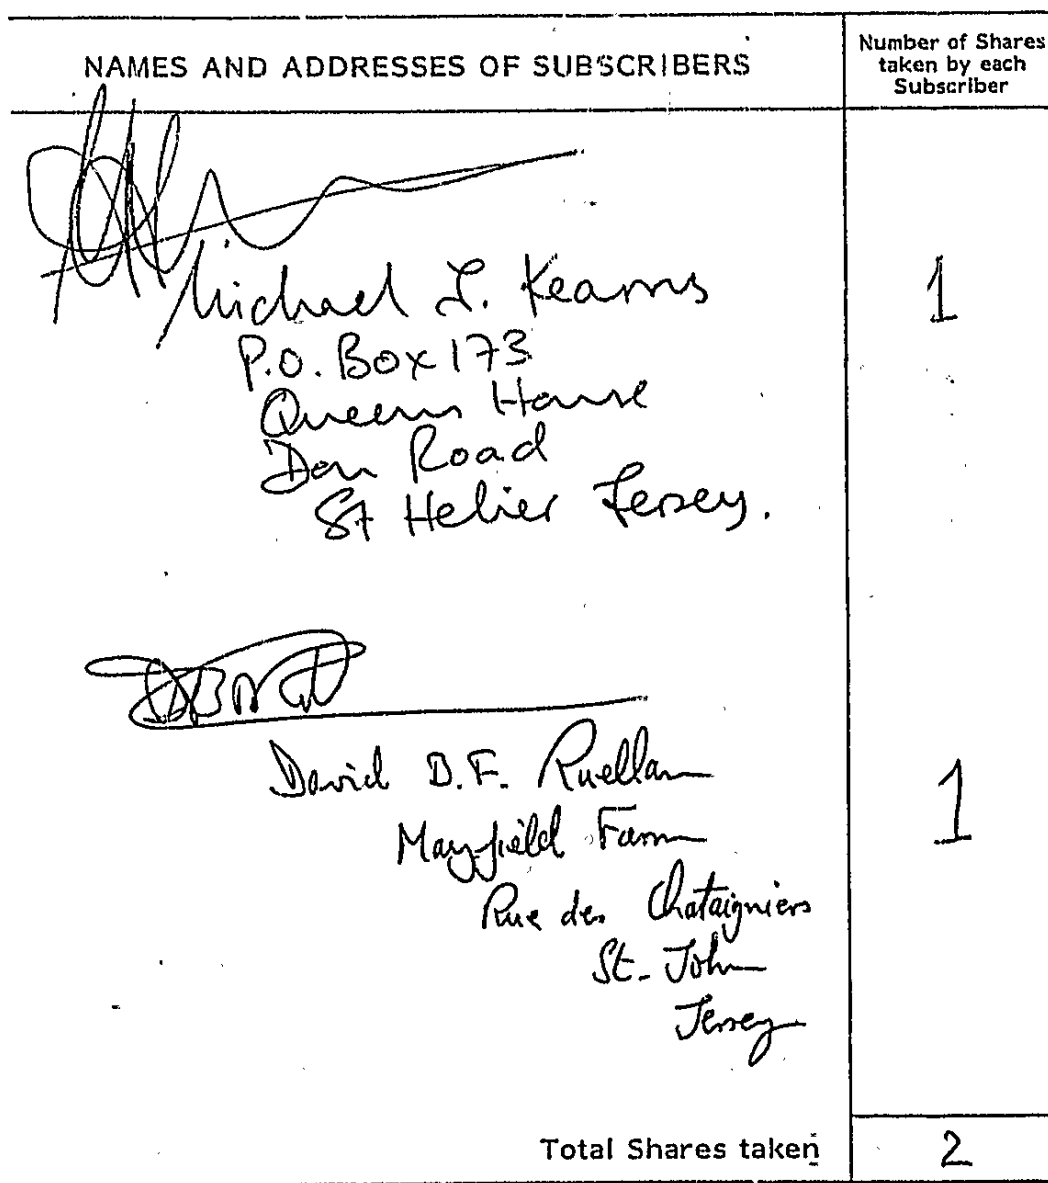 NAMES AND ADDRESSES OF SUBSCRIBERS
Number of Shares
taken by each
Subscriber
Michael L. Kearns
1
P.O. Box 173
Queens House
Don Road
St Helier Jersey.
David B.F. Ruellan
1
Mayfield Farm
Rue des Chataigniers
St. John
Jersey
Total Shares taken
2